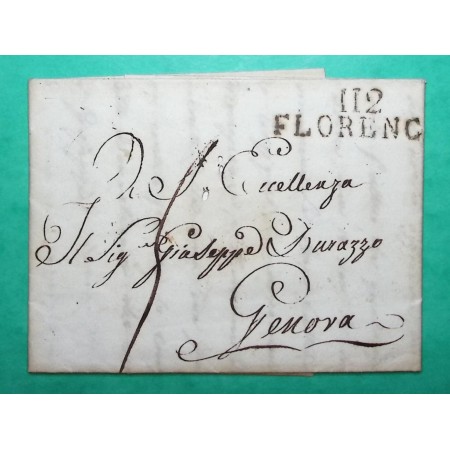 112
FLORENC
S. Eccellenza
Il Sig. Giuseppe Durazzo
Genova